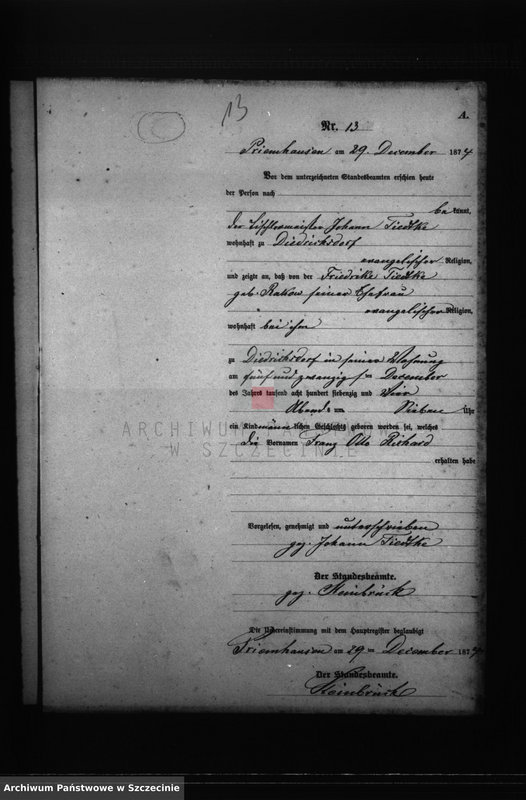 13
A.
Nr. 13
Priemhausen am 29. December 1874
Vor dem unterzeichneten Standesbeamten erschien heute
der Person nach
bekannt,
der Tischlermeister Johann Tiedtke
wohnhaft zu Diedrichsdorf
evangelischer Religion,
und zeigte an, daß von der Friedrike Tiedtke
geb. Rakow seiner Ehefrau
evangelischer Religion,
wohnhaft bei ihm
zu Diedrichsdorf in seiner Wohnung
am fünf und zwanzigsten December
des Jahres tausend acht hundert siebenzig und vier
Abends um Sieben Uhr
ein Kind männlichen Geschlechts geboren worden sei, welches
die Vornamen Franz Otto Richard
erhalten habe
Vorgelesen, genehmigt und unterschrieben
gez. Johann Tiedtke
Der Standesbeamte.
gez. Steinbrück
Die Uebereinstimmung mit dem Hauptregister beglaubigt
Priemhausen am 29ten December 1874
Der Standesbeamte.
Steinbrück
ARCHIWUM PAŃSTWOWE
W SZCZECINIE
Archiwum Państwowe w Szczecinie